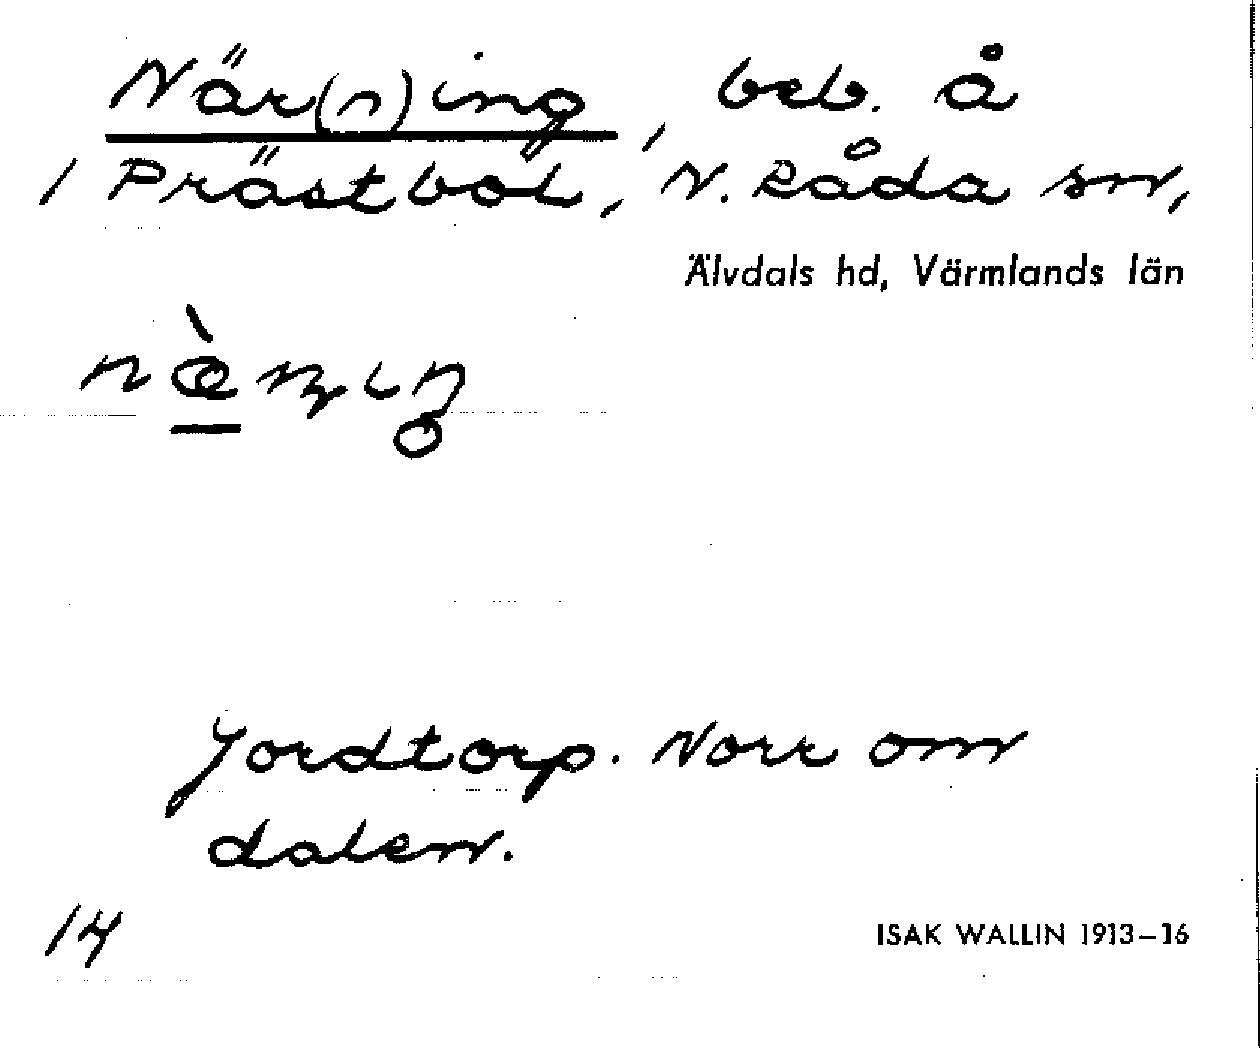 När(n)ing, beb. å
/ Prästbol, N. Råda sn,
Älvdals hd, Värmlands län
Jordtorp. Norr om
dalen.
14
ISAK WALLIN 1913–16